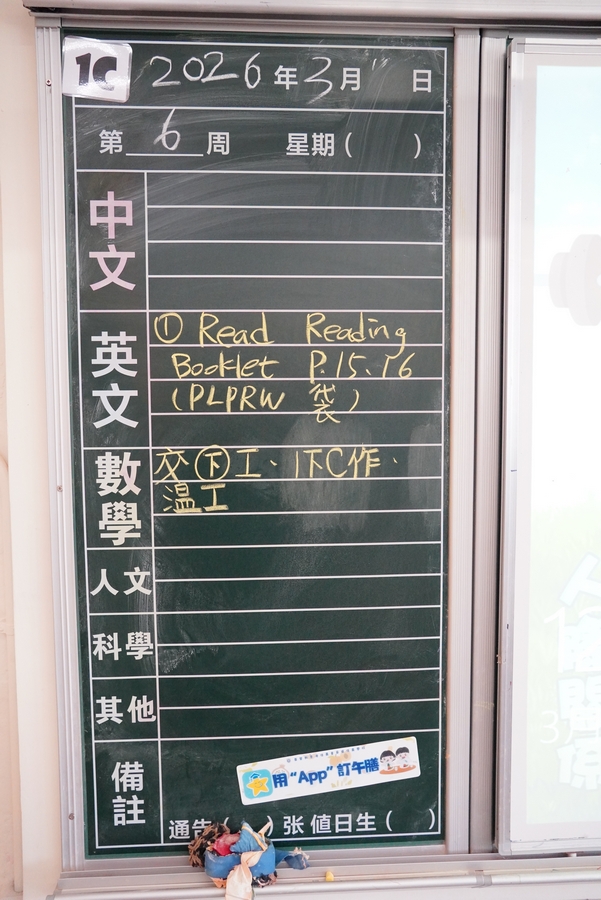 1C 2026年3月 日
第 6 周 星期( )
中文
英文
① Read Reading
Booklet P.15、16
(PLPRW 袋)
數學
交㊦工、1下C作、
温工
人文
科學
其他
備註
用“App”訂午膳
通告( )张 值日生( )